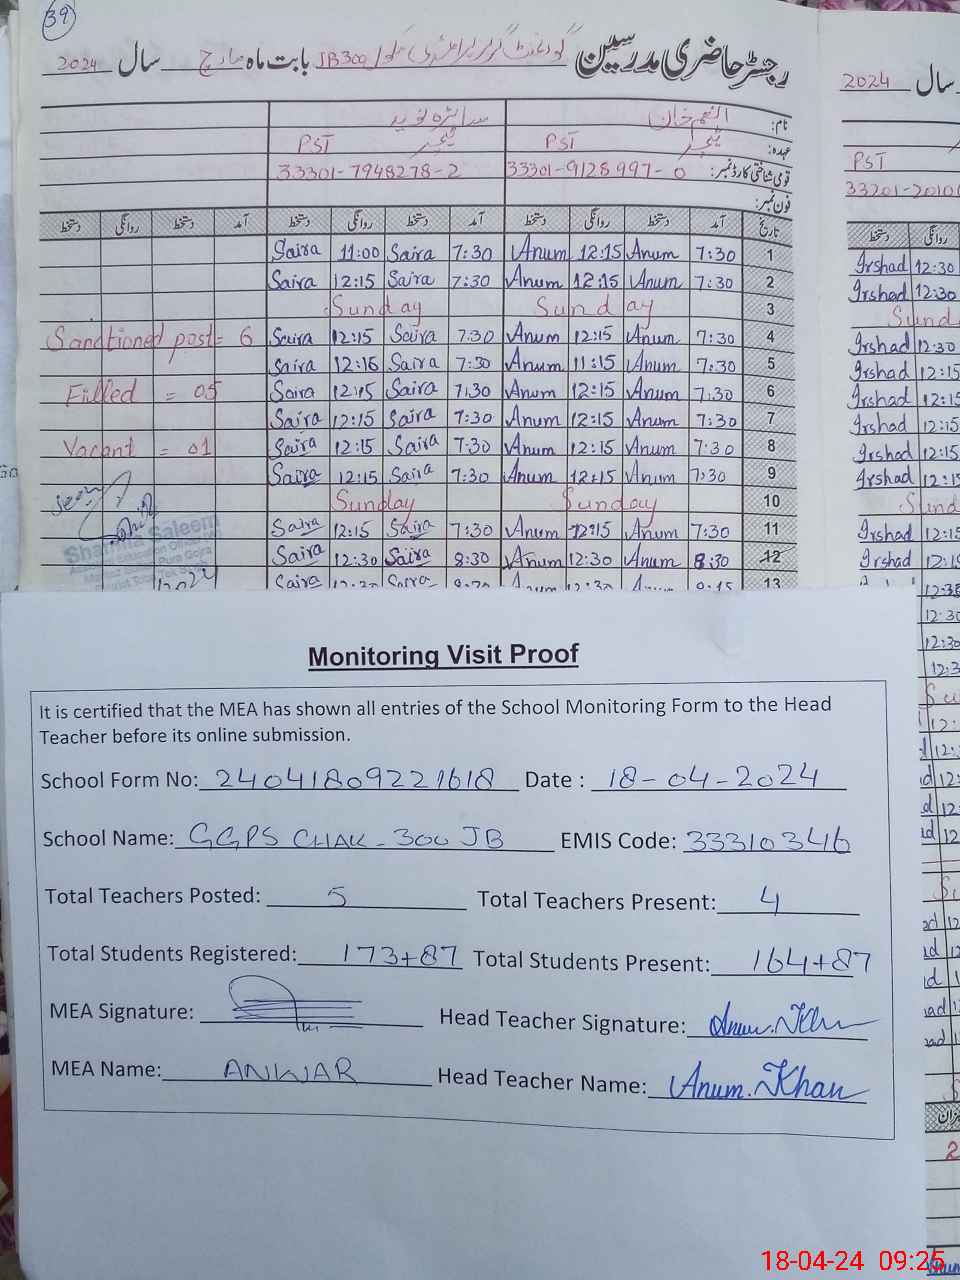 39
رجسٹر حاضری مدرسین گورنمنٹ گرلز پرائمری سکول 300JB بابت ماہ مارچ سال 2024
نام: انعم خان سائرہ نوید
عہدہ: ٹیچر PST ٹیچر PST
قومی شناختی کارڈ نمبر: 33301-9128997-0 33301-7948278-2
فون نمبر:
تاریخ آمد دستخط روانگی دستخط آمد دستخط روانگی دستخط آمد دستخط روانگی دستخط
Saira 11:00 Saira 7:30 Anum 12:15 Anum 7:30 1
Saira 12:15 Saira 7:30 Anum 12:15 Anum 7:30 2
Sunday Sunday 3
Sanctioned post = 6 Saira 12:15 Saira 7:30 Anum 12:15 Anum 7:30 4
Saira 12:16 Saira 7:30 Anum 11:15 Anum 7:30 5
Filled = 05 Saira 12:15 Saira 7:30 Anum 12:15 Anum 7:30 6
Saira 12:15 Saira 7:30 Anum 12:15 Anum 7:30 7
Vacant = 01 Saira 12:15 Saira 7:30 Anum 12:15 Anum 7:30 8
Saira 12:15 Saira 7:30 Anum 12:15 Anum 7:30 9
Sunday Sunday 10
Saira 12:15 Saira 7:30 Anum 12:15 Anum 7:30 11
Saira 12:30 Saira 8:30 Anum 12:30 Anum 8:30 12
13
سال 2024
PST
33201-2010
دستخط روانگی
Irshad 12:30
Irshad 12:30
Irshad 12:30
Irshad 12:15
Irshad 12:15
Irshad 12:15
Irshad 12:15
Irshad 12:15
Irshad 12:15
Irshad 12:15
Monitoring Visit Proof
It is certified that the MEA has shown all entries of the School Monitoring Form to the Head
Teacher before its online submission.
School Form No: 24041809221618 Date : 18-04-2024
School Name: GGPS CHAK-300 JB EMIS Code: 33310346
Total Teachers Posted: 5 Total Teachers Present: 4
Total Students Registered: 173+87 Total Students Present: 164+87
MEA Signature: Head Teacher Signature: Anum Khan
MEA Name: ANWAR Head Teacher Name: Anum Khan
18-04-24 09:25